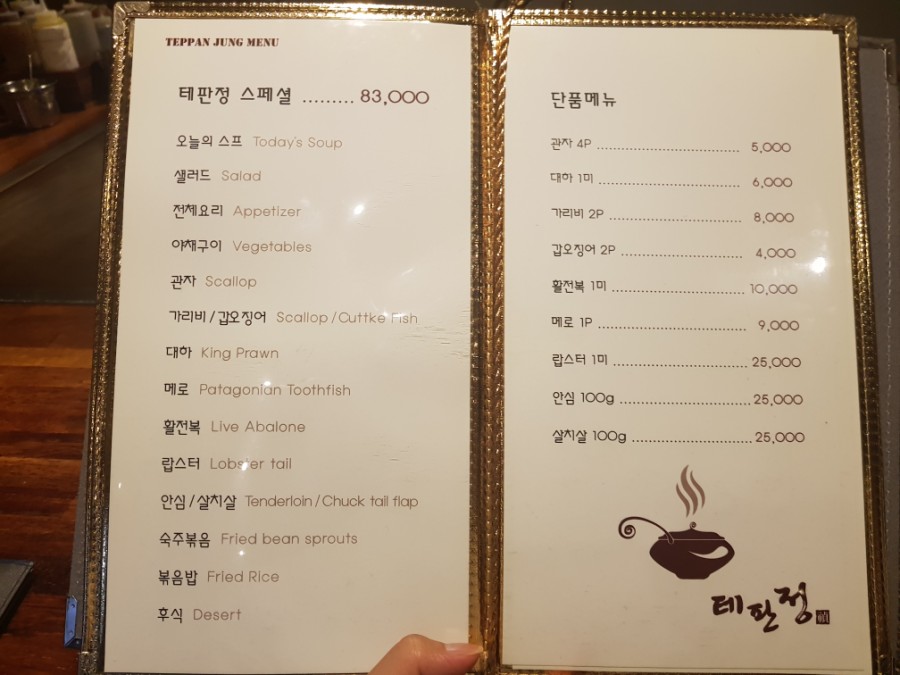 TEPPAN JUNG MENU
테판정 스페셜 ......... 83,000
오늘의 스프 Today's Soup
샐러드 Salad
전체요리 Appetizer
야채구이 Vegetables
관자 Scallop
가리비 / 갑오징어 Scallop / Cuttke Fish
대하 King Prawn
메로 Patagonian Toothfish
활전복 Live Abalone
랍스터 Lobster tail
안심 / 살치살 Tenderloin / Chuck tail flap
숙주볶음 Fried bean sprouts
볶음밥 Fried Rice
후식 Desert
단품메뉴
관자 4P ........ 5,000
대하 1미 ........ 6,000
가리비 2P ........ 8,000
갑오징어 2P ........ 4,000
활전복 1미 ........ 10,000
메로 1P ........ 9,000
랍스터 1미 ........ 25,000
안심 100g ........ 25,000
살치살 100g ........ 25,000
테판정